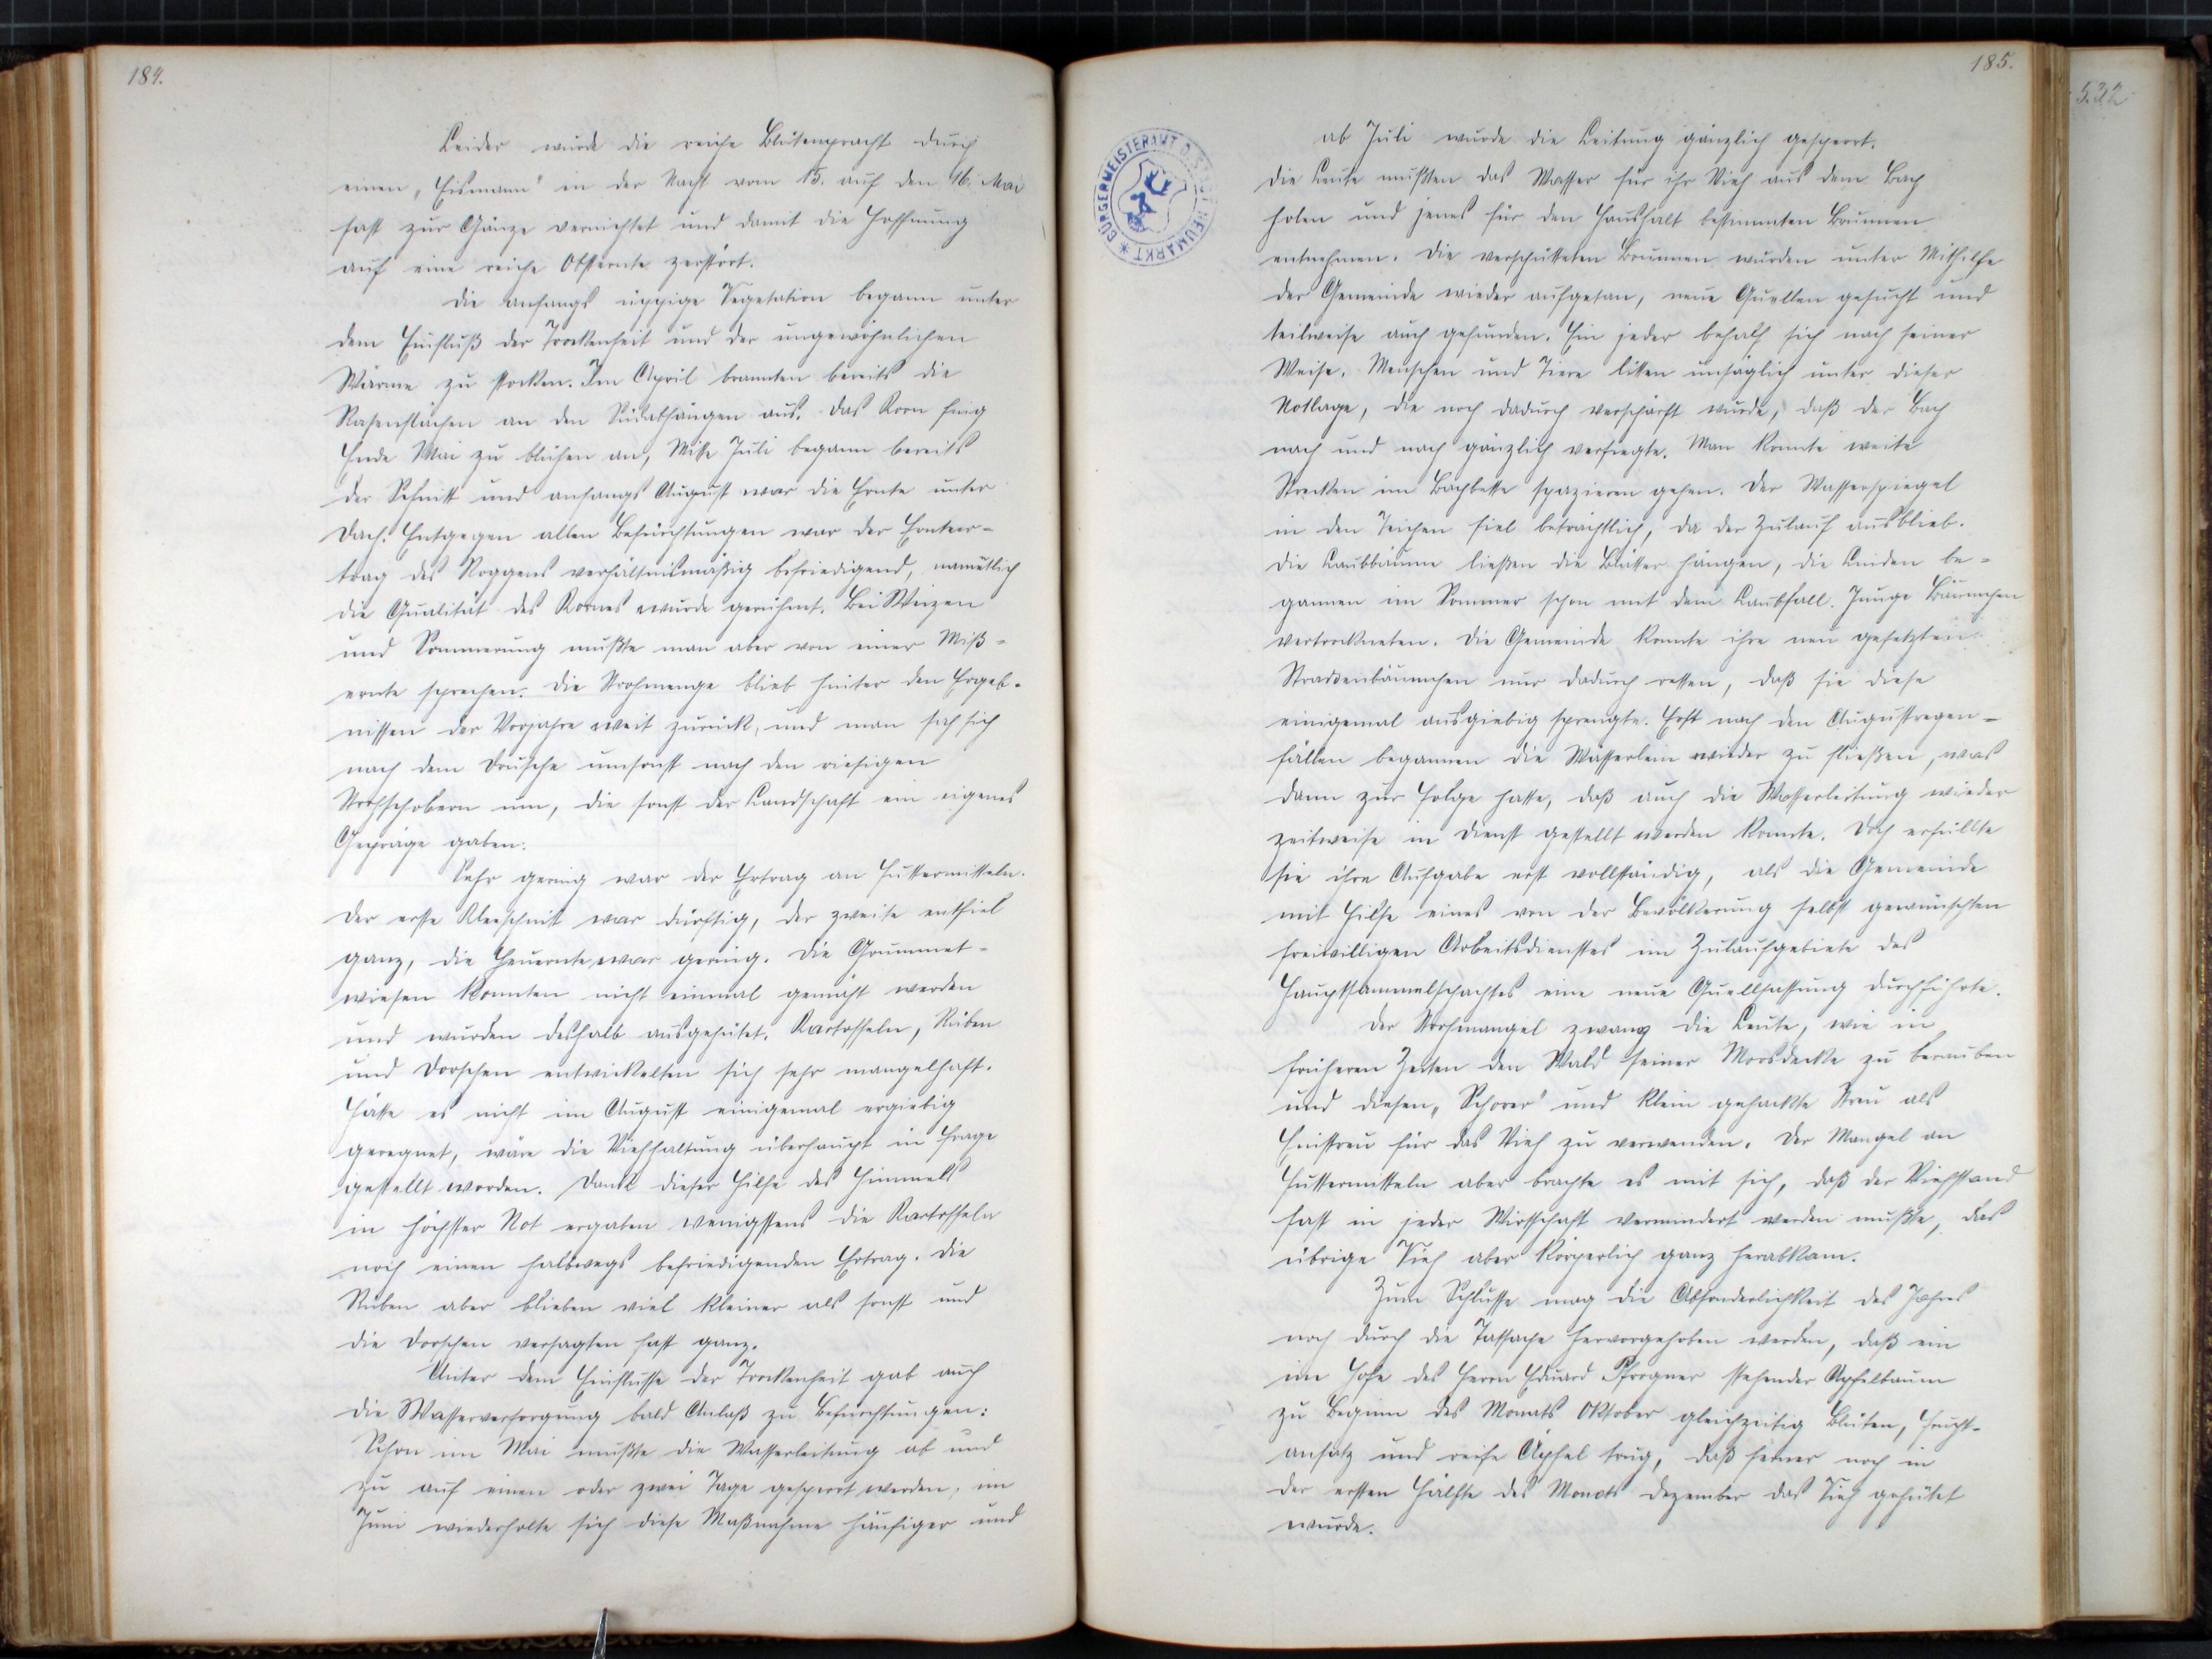 184.
Leider wurde die reiche Blütenpracht durch
einen „Eismann" in der Nacht vom 15. auf den 16. Mai
fast zur Gänze vernichtet und damit die Hoffnung
auf eine reiche Obsternte zerstört.
Die anfangs üppige Vegetation begann unter
dem Einfluß der Trockenheit und der ungewöhnlichen
Wärme zu stocken. Im April brannten bereits die
Rasenflächen an den Südabhängen aus. Das Korn fing
Ende Mai zu blühen an, Mitte Juli begann bereits
der Schnitt und anfangs August war die Ernte unter
Dach. Entgegen allen Befürchtungen war der Ernteer-
trag des Roggens verhältnismäßig befriedigend, namentlich
die Qualität des Kornes wurde gerühmt. Bei Weizen
und Sommerung mußte man aber von einer Miß-
ernte sprechen. Die Strohmenge blieb hinter den Ergeb-
nissen der Vorjahre weit zurück, und man sah sich
nach dem Drusche umsonst nach den riesigen
Strohschobern um, die sonst der Landschaft ein eigenes
Gepräge gaben.
Sehr gering war der Ertrag an Futtermitteln.
Der erste Kleeschnitt war dürftig, der zweite entfiel
ganz, die Heuernte war gering. Die Grummet-
wiesen konnten nicht einmal gemäht werden
und wurden deshalb ausgehütet. Kartoffeln, Rüben
und Dorschen entwickelten sich sehr mangelhaft.
Hätte es nicht im August einigemal ergiebig
geregnet, wäre die Viehhaltung überhaupt in Frage
gestellt worden. Dank dieser Hilfe des Himmels
in höchster Not ergaben wenigstens die Kartoffeln
noch einen halbwegs befriedigenden Ertrag. Die
Rüben aber blieben viel kleiner als sonst und
die Dorschen versagten fast ganz.
Unter dem Einflusse der Trockenheit gab auch
die Wasserversorgung bald Anlaß zu Befürchtungen:
Schon im Mai mußte die Wasserleitung ab und
zu auf einen oder zwei Tage gesperrt werden, im
Juni wiederholte sich diese Maßnahme häufiger und
185.
532
BÜRGERMEISTERAMT D. STADT NEUMARKT
ab Juli wurde die Leitung gänzlich gesperrt.
Die Leute mußten das Wasser für ihr Vieh aus dem Bach
holen und jenes für den Haushalt bestimmten Brunnen
entnehmen. Die verschütteten Brunnen wurden unter Mithilfe
der Gemeinde wieder aufgetan, neue Quellen gesucht und
teilweise auch gefunden. Ein jeder behalf sich nach seiner
Weise. Menschen und Tiere litten unsäglich unter dieser
Notlage, die noch dadurch verschärft wurde, daß der Bach
nach und nach gänzlich versiegte. Man konnte weite
Strecken im Bachbette spazieren gehen. Der Wasserspiegel
in den Teichen fiel beträchtlich, da der Zulauf ausblieb.
Die Laubbäume ließen die Blätter hängen, die Linden be-
gannen im Sommer schon mit dem Laubfall. Junge Bäumchen
vertrockneten. Die Gemeinde konnte ihre neu gesetzten
Strassenbäumchen nur dadurch retten, daß sie diese
einigemal ausgiebig sprengte. Erst nach den Augustregen-
fällen begannen die Wässerlein wieder zu fließen, was
dann zur Folge hatte, daß auch die Wasserleitung wieder
zeitweise in Dienst gestellt werden konnte. Doch erfüllte
sie ihre Aufgabe erst vollständig, als die Gemeinde
mit Hilfe eines von der Bevölkerung selbst gewünschten
freiwilligen Arbeitsdienstes im Zulaufgebiete des
Hauptsammelschachtes eine neue Quellfassung durchführte.
Der Strohmangel zwang die Leute, wie in
früheren Zeiten den Wald seiner Moosdecke zu berauben
und diesen „Schorer" und klein gehackte Streu als
Einstreu für das Vieh zu verwenden. Der Mangel an
Futtermitteln aber brachte es mit sich, daß der Viehstand
fast in jeder Wirtschaft vermindert werden mußte, das
übrige Vieh aber körperlich ganz herabkam.
Zum Schlusse mag die Absonderlichkeit des Jahres
noch durch die Tatsache hervorgehoben werden, daß ein
im Hofe des Herrn Eduard Pfrogner stehender Apfelbaum
zu Beginn des Monats Oktober gleichzeitig Blüten, Frucht-
ansatz und reife Äpfel trug, daß ferner noch in
der ersten Hälfte des Monats Dezember das Vieh gehütet
wurde.